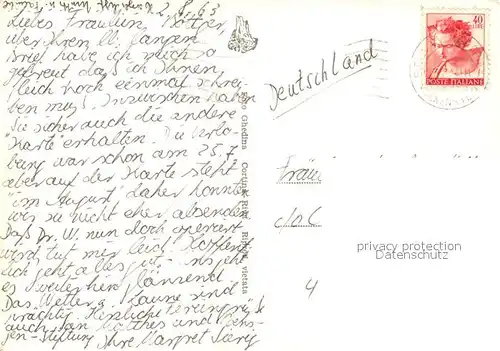 2. 8. 63
Liebes Fräulein
über Ihren lb. langen
Brief habe ich mich so
gefreut, daß ich Ihnen
gleich noch einmal schrei-
ben muß. Inzwischen haben
Sie sicher auch die andere
Karte erhalten. Die Verlo-
bung war schon am 25.7.
aber auf der Karte steht
"im August" daher konnten
wir sie nicht eher absenden.
Daß Dr. W. nun doch operiert
wird, tut mir leid. Hoffent-
lich geht alles gut. Uns geht
es weiterhin glänzend
Das Wetter u. Laune sind
prächtig. Herzliche Feriengrüße
auch an Matthes und
Ihre Margret
Foto Ghedina Cortina Ripr. vietata
Deutschland
40
LIRE
POSTE ITALIANE
Fräu
privacy protection
Datenschutz
4